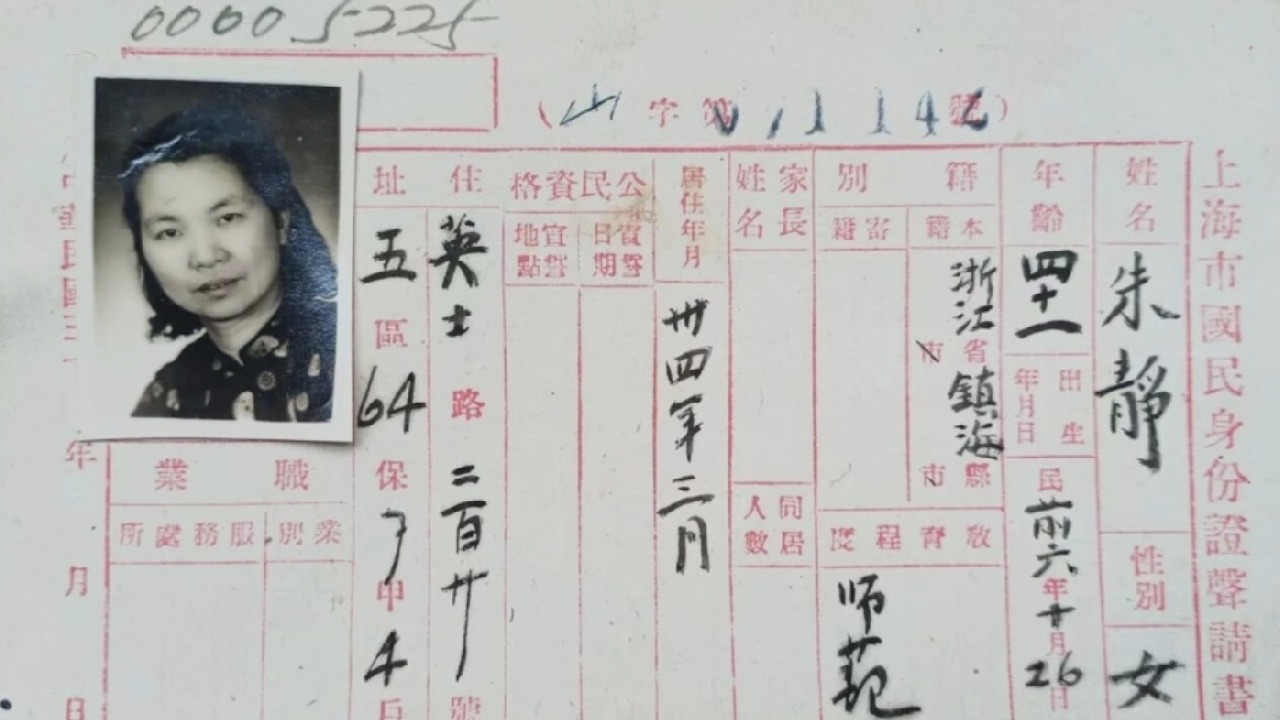 0000 5225
(山字第號)
上海市國民身份證聲請書
姓名
朱靜
性別
女
年齡
四十一
出生年月日
民前六年十月26日
籍別
本籍
浙江省市鎮海縣市
寄籍
教育程度
师范
家長姓名
同居人數
居住年月
卅四年三月
公民資格
宣誓日期
宣誓地點
住址
英士路二百廿號
五區64保7甲4戶
職業
業別
服務處所
年月日